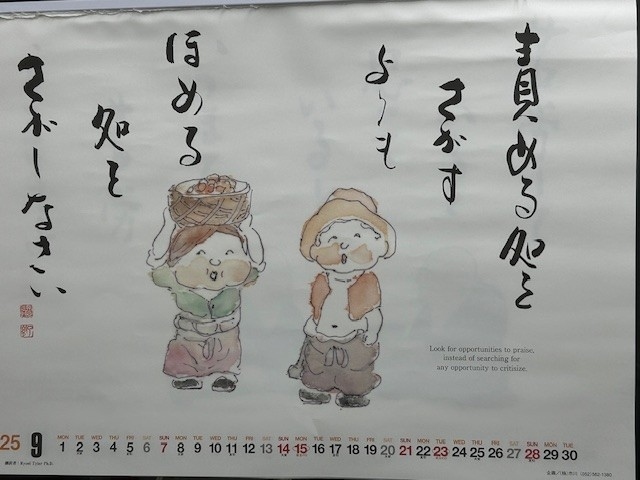 責める処を
さがす
よりも
ほめる
処を
さがしなさい
Look for opportunities to praise,
instead of searching for
any opportunity to critisize.
25 9
MON TUE WED THU FRI SAT SUN MON TUE WED THU FRI SAT SUN MON TUE WED THU FRI SAT SUN MON TUE WED THU FRI SAT SUN MON TUE
1 2 3 4 5 6 7 8 9 10 11 12 13 14 15 16 17 18 19 20 21 22 23 24 25 26 27 28 29 30